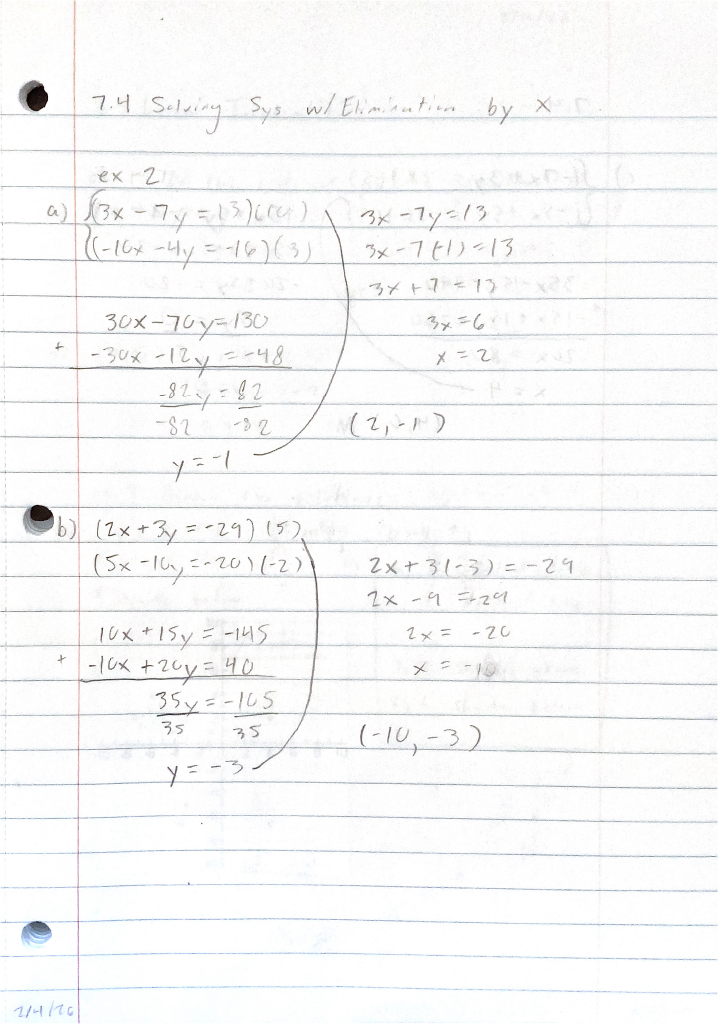 7.4 Solving Sys w/ Elimination by x
ex 2
a) {(3x - 7y = 13)(10)
{(-10x - 4y = -16)(3)
30x - 70y = 130
+ -30x - 12y = -48
-82y = 82
-82 -82
y = -1
3x - 7y = 13
3x - 7(-1) = 13
3x + 7 = 13
3x = 6
x = 2
(2, -1)
b) (2x + 3y = -29)(5)
(5x - 10y = -20)(-2)
10x + 15y = -145
+ -10x + 20y = 40
35y = -105
35 35
y = -3
2x + 3(-3) = -29
2x - 9 = -29
2x = -20
x = -10
(-10, -3)